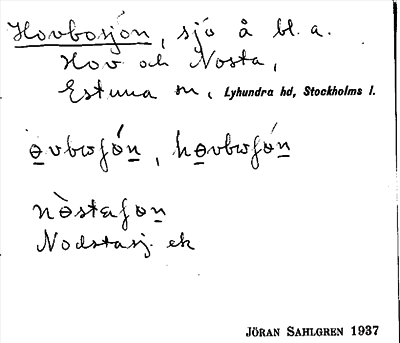 Hovbosjön, sjö å bl. a.
Hov och Nosta,
Estuna sn, Lyhundra hd, Stockholms l.
o̲vbωʃón̲, ho̲vbωʃón̲
nòstaʃon̲
Nodstasj. ek
JÖRAN SAHLGREN 1937